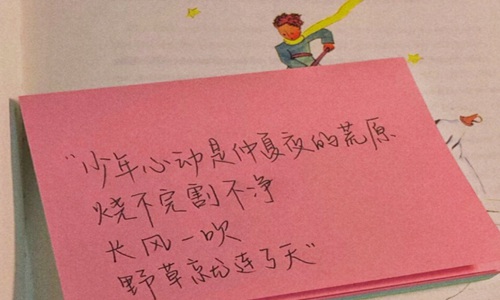 “少年心动是仲夏夜的荒原
烧不完割不净
长风一吹
野草就连了天”